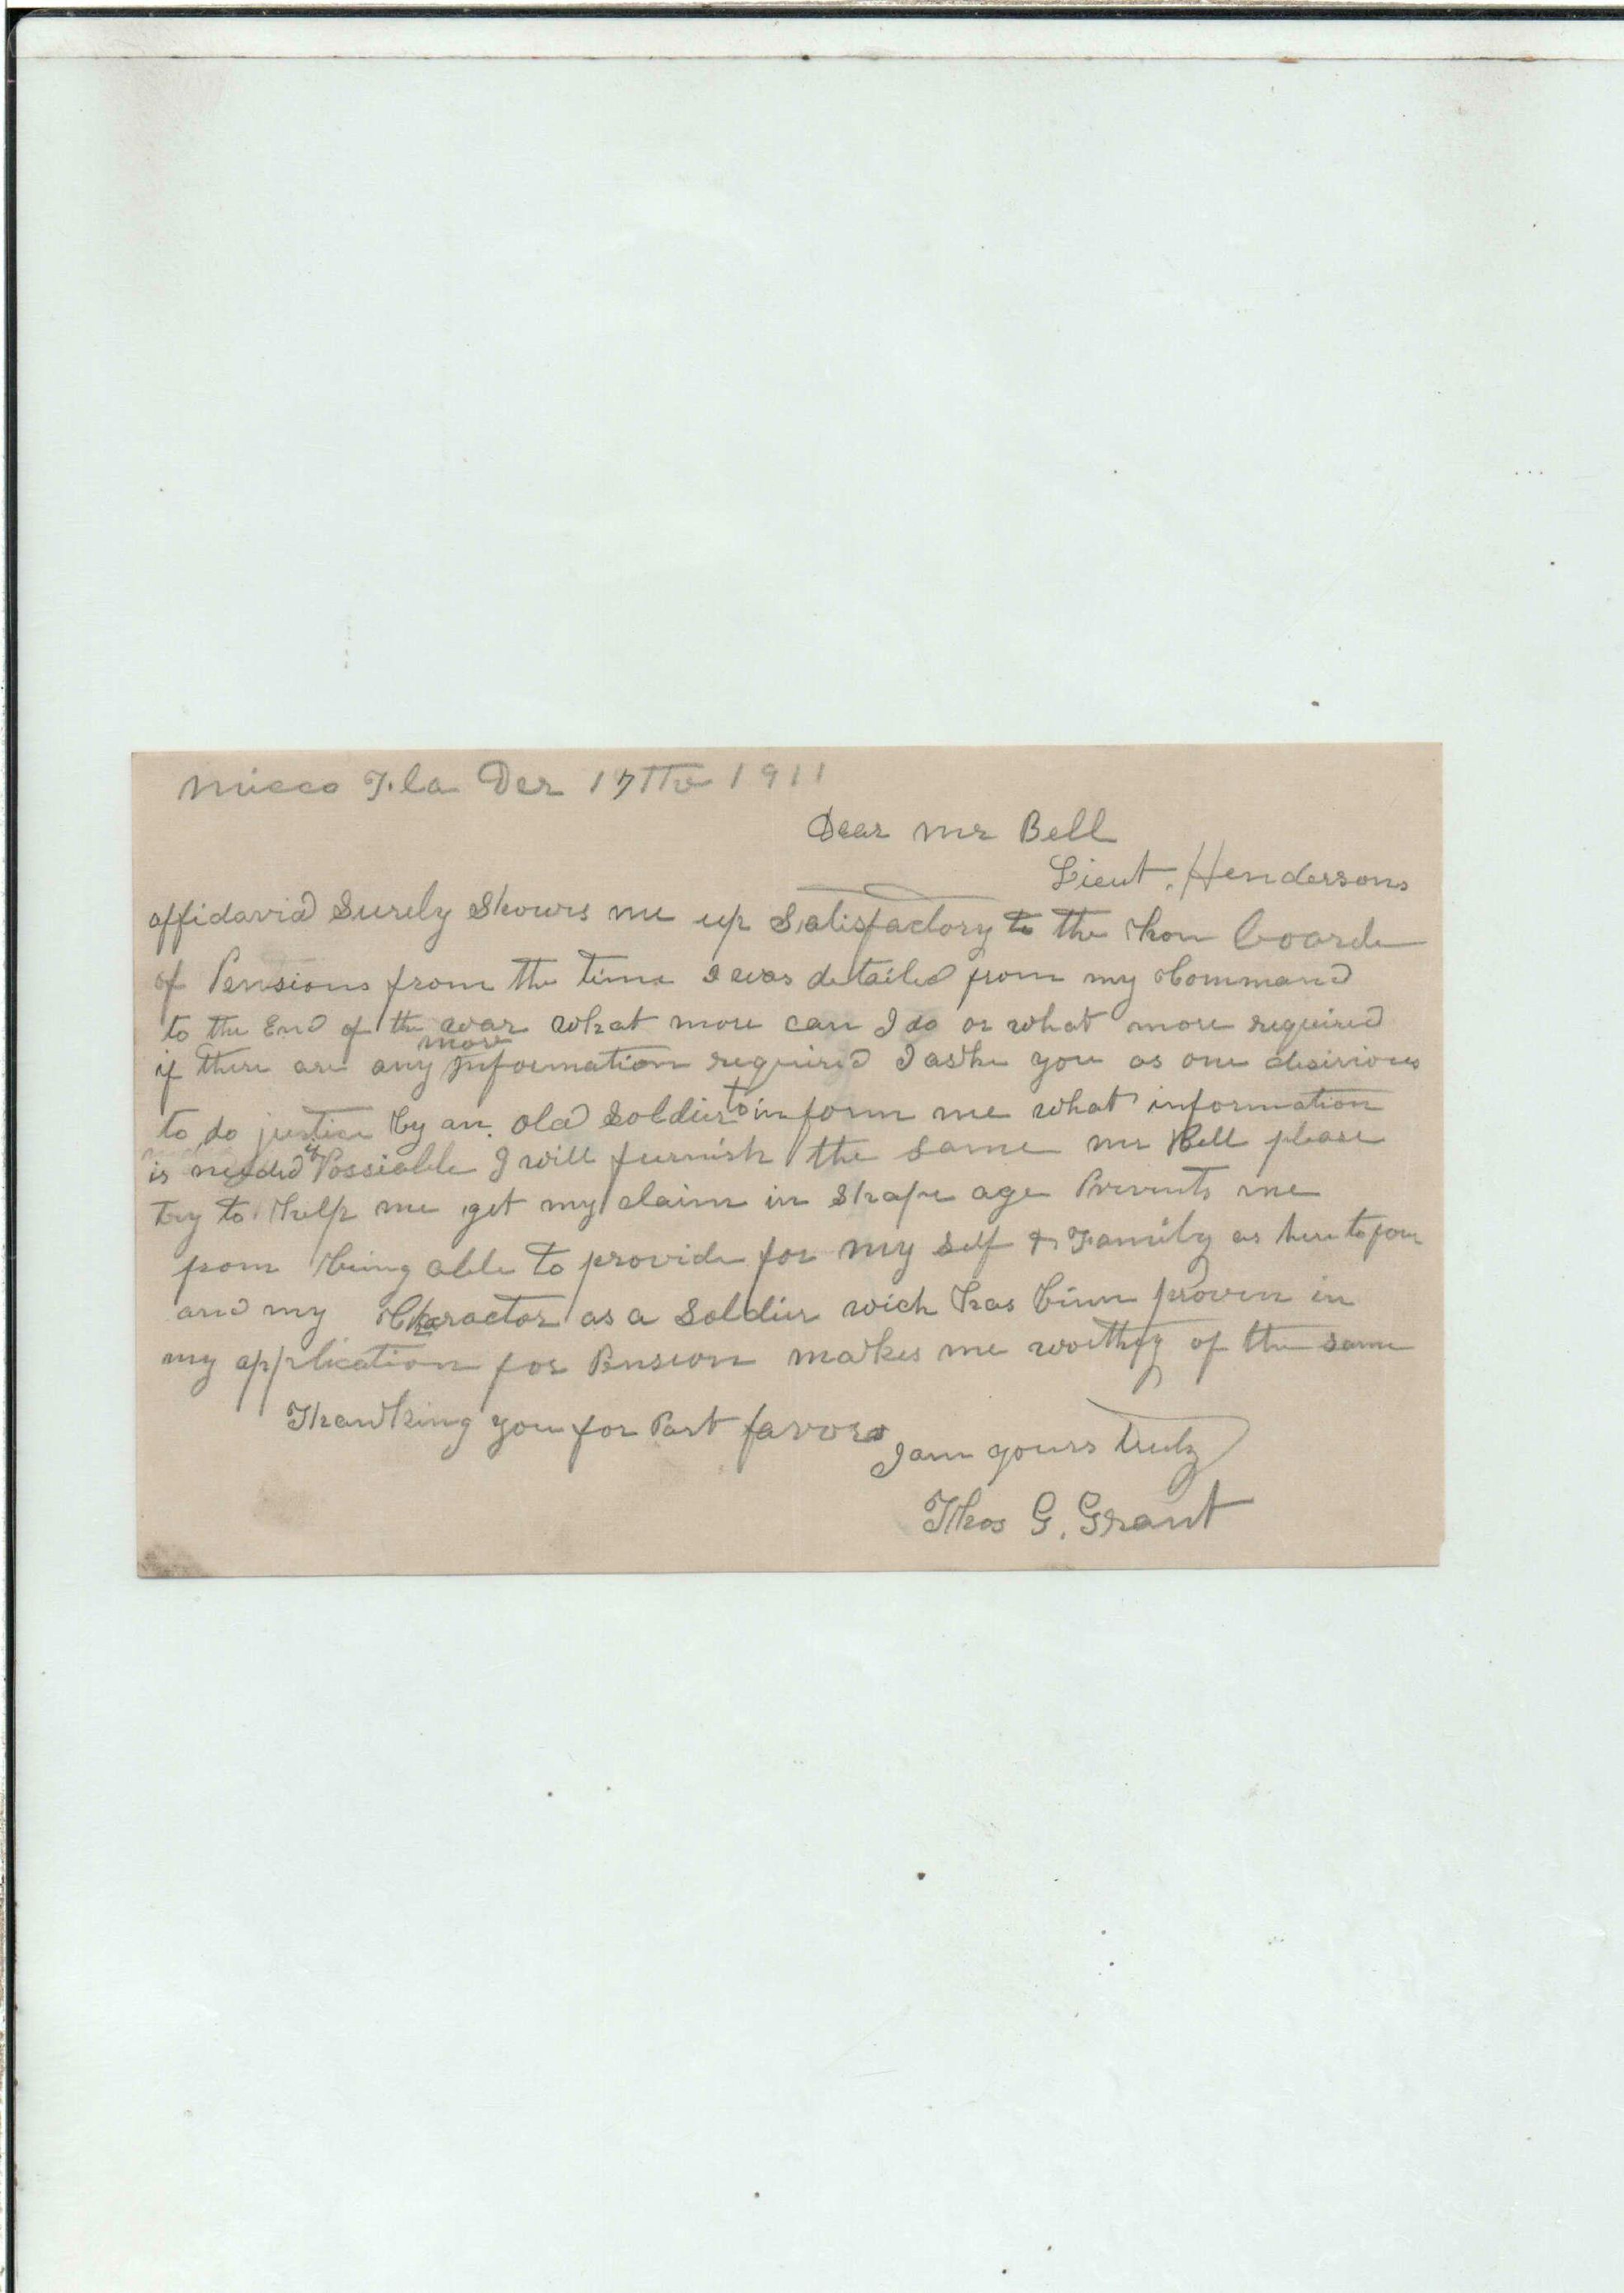 Micco Fla Dec 17th 1911
Dear Mr Bell
Lieut. Hendersons
affidavid Surely Shows me up Satisfactory to the Hon boarde
of Pensions from the time I was detailed from my Command
to the End of the war what more can I do or what more required
if there are any more information required I aske you as one desirious
to do justice by an old Soldier to inform me what information
is needed if Possiable I will furnish the same Mr Bell please
try to help me get my claim in shape age Prevents me
from being able to provide for my self & Family as here to fore
and my Charactor as a Soldier wich has binn proven in
my application for Pension makes me worthy of the same
Thanking you for Past favors
I am yours truly
Thos G. Grant